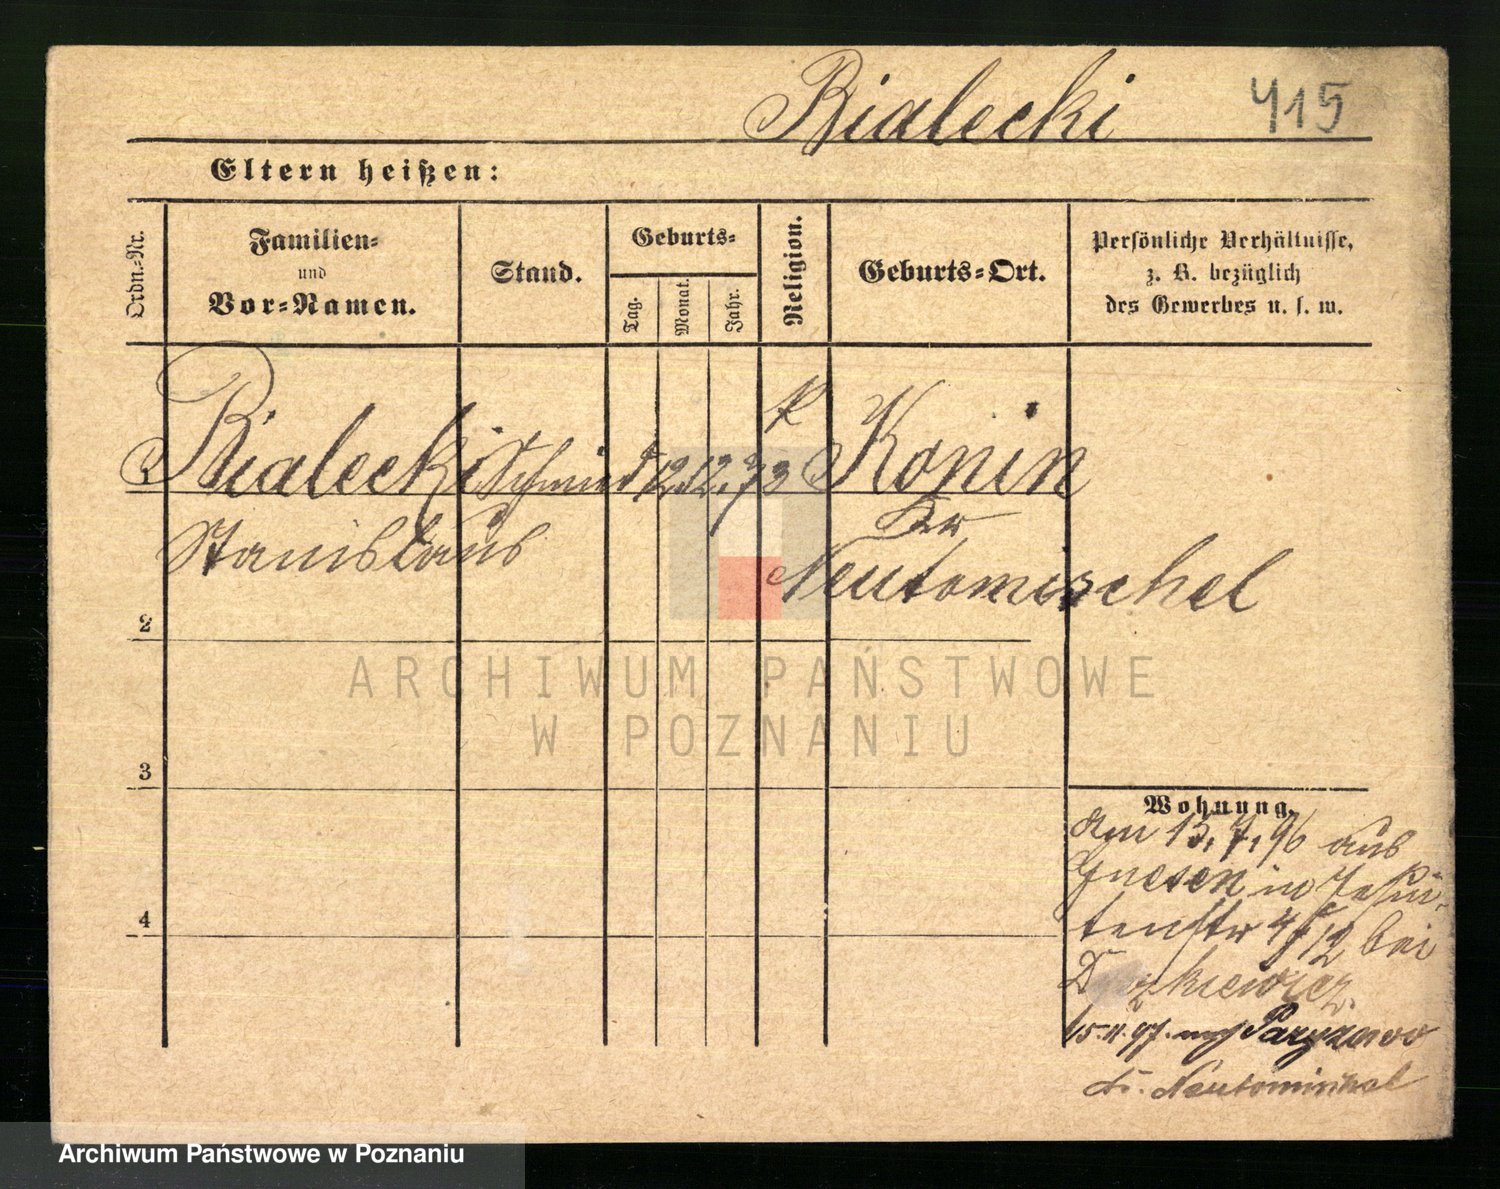 Bialecki 415
Eltern heißen:
Ordn.-Nr.
Familien=
und
Vor=Namen.
Stand.
Geburts=
Tag.
Monat.
Jahr.
Religion.
Geburts=Ort.
Persönliche Verhältnisse,
z. B. bezüglich
des Gewerbes u. s. w.
Bialecki Schmied 12. 12. 73 k Konin
Stanislaus
Kr
Neutomischel
2
3
4
Wohnung.
Am 13. 7. 96 aus
Gnesen in Jesui-
tenstr 4 bei
15. 11. 97. nach
Kr. Neutomischel
ARCHIWUM PAŃSTWOWE
W POZNANIU
Archiwum Państwowe w Poznaniu